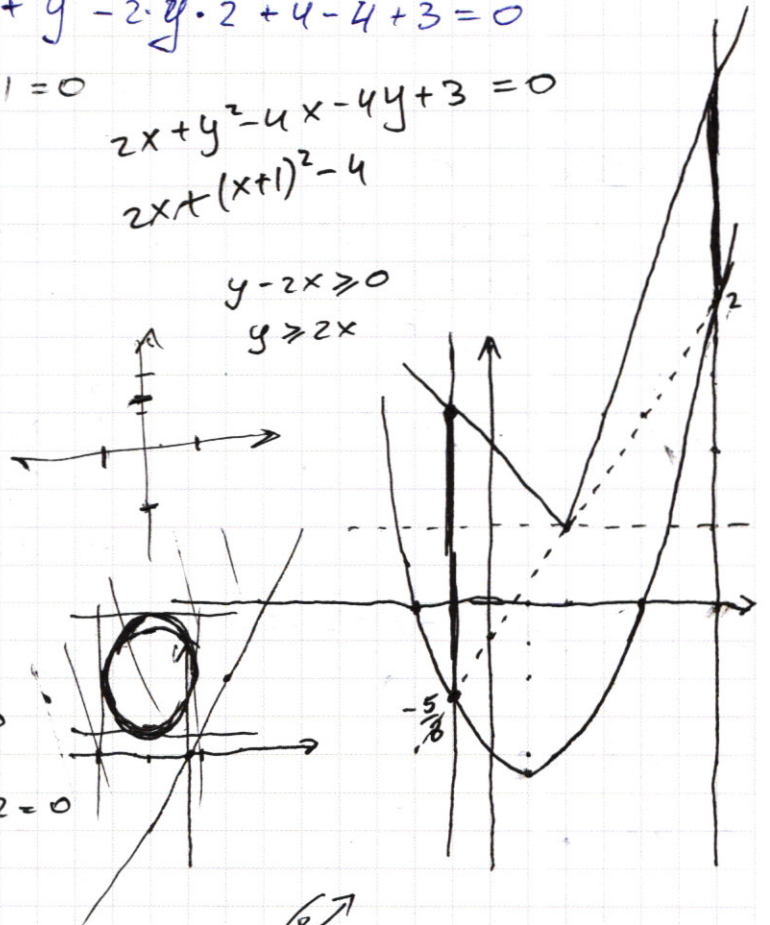 + y - 2·y·2 + 4 - 4 + 3 = 0
1 = 0
2x + y² - 4x - 4y + 3 = 0
2x + (x+1)² - 4
y - 2x ⩾ 0
y ⩾ 2x
2
-5/8
2 = 0